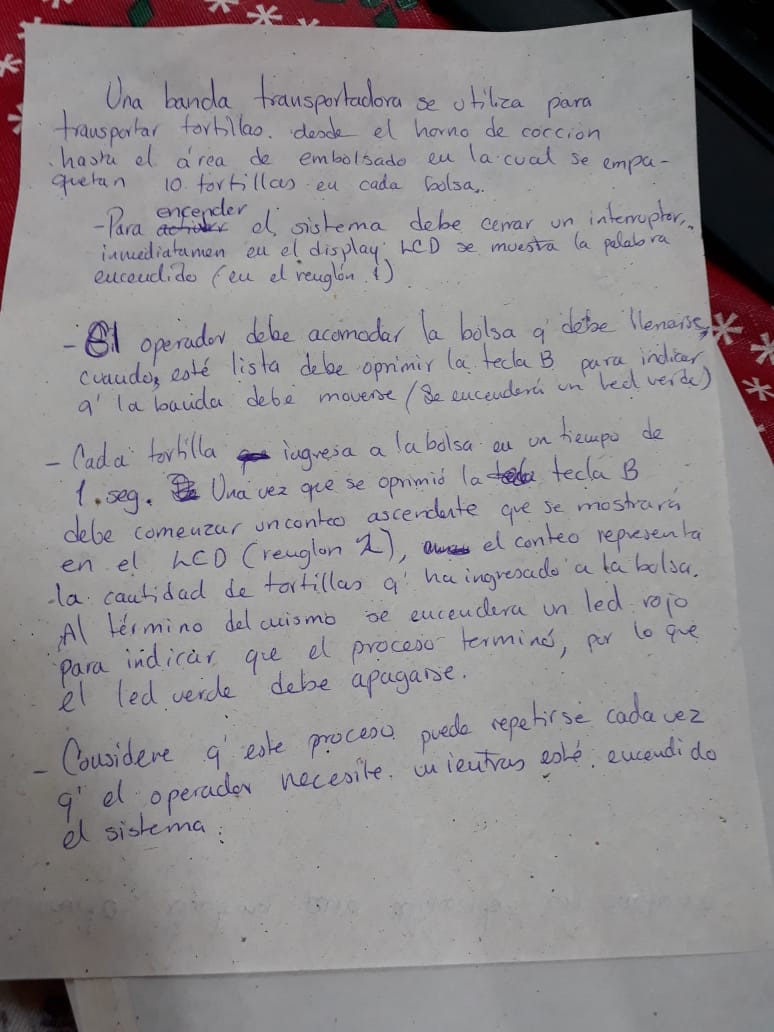 Una banda transportadora se utiliza para
transportar tortillas. desde el horno de cocción
hasta el área de embolsado en la cual se empa-
quetan 10 tortillas en cada bolsa.
- Para encender el sistema debe cerrar un interruptor,
inmediatamen en el display LCD se muesta la palabra
encendido (en el renglón 1)
- El operador debe acomodar la bolsa q' debe llenarse,
cuando esté lista debe oprimir la tecla B para indicar
q' la banda debe moverse (Se encenderá un led verde)
- Cada tortilla ingresa a la bolsa en un tiempo de
1. seg. Una vez que se oprimió la tecla B
debe comenzar un conteo ascendente que se mostrará
en el LCD (renglon 2), el conteo representa
la cantidad de tortillas q' ha ingresado a la bolsa.
Al término del mismo se encendera un led rojo
para indicar que el proceso terminó, por lo que
el led verde debe apagarse.
- Considere q' este proceso puede repetirse cada vez
q' el operador necesite. mientras esté encendido
el sistema.